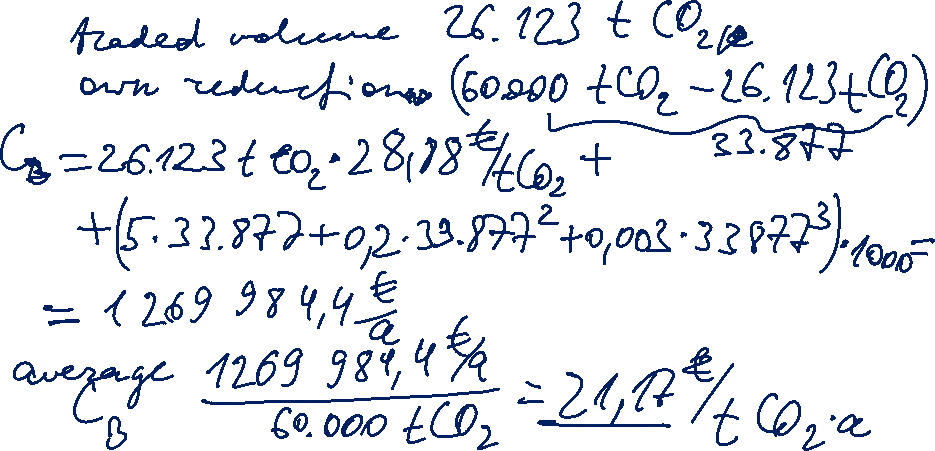 traded volume 26.123 t CO2/a
own reduction (60.000 tCO2 - 26.123 tCO2)
33.877
CB = 26.123 t CO2 · 28,18 €/tCO2 +
+ (5 · 33.877 + 0,2 · 33.877² + 0,003 · 33877³) · 1000
= 1269 984,4 €/a
average 1269 984,4 €/a
CB 60.000 tCO2 = 21,17 €/t CO2·a